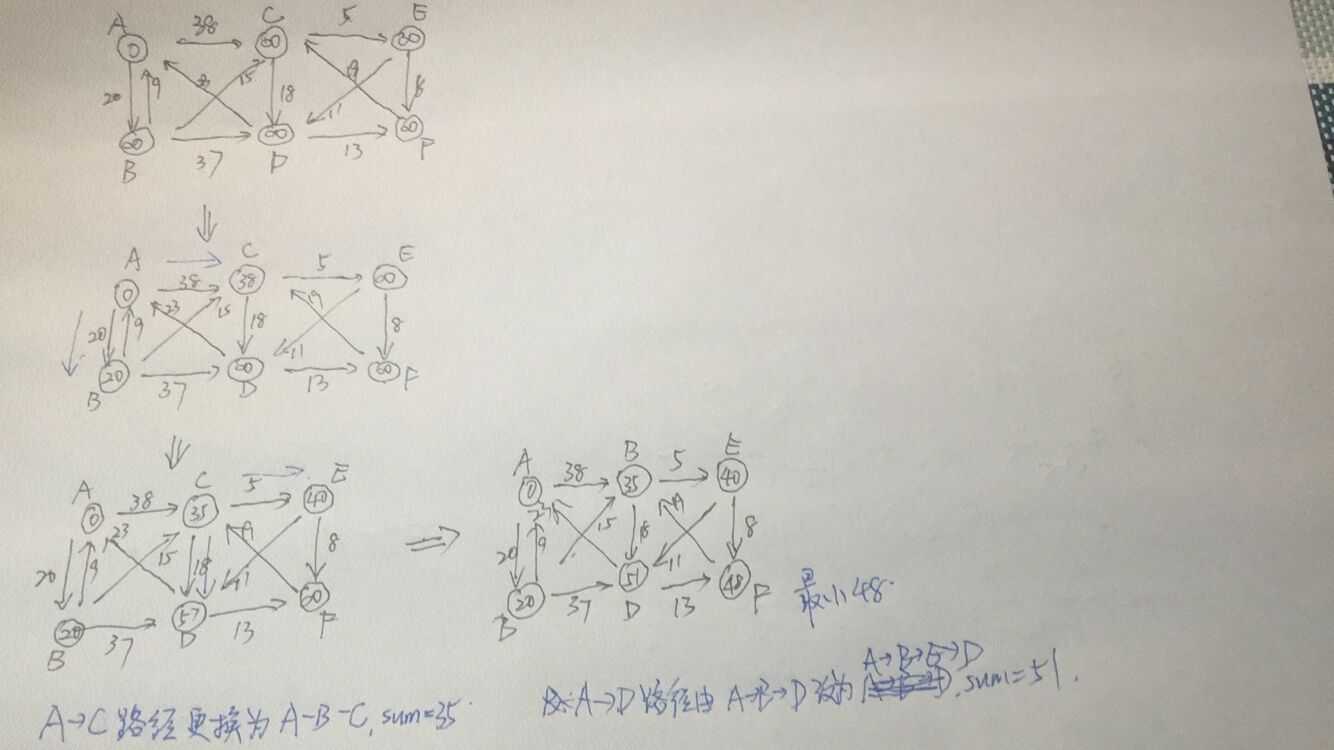 A 38 C 5 E
0 ∞ ∞
20 9 15 19 18 11 8
∞ ∞ ∞
B 37 D 13 F
A C E
0 38 38 5 ∞
20 9 23 15 18 19 11 8
20 37 ∞ 13 ∞
B D F
A 38 C 5 E
0 35 40
20 9 23 15 18 19 11 8
20 37 57 13 ∞
B D F
A 38 B 5 E
0 35 40
20 9 23 15 18 19 11 8
20 37 51 13 48
B D F 最小48.
A→C 路径更换为 A-B-C, sum=35.
A→B→E→D
A→D 路径由 A→B→D 改为, sum=51.